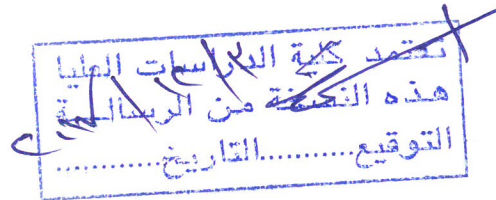 تعتمد كلية الدراسات العليا
هذه النسخة من الرسالـــة
التوقيع...........التاريخ...........